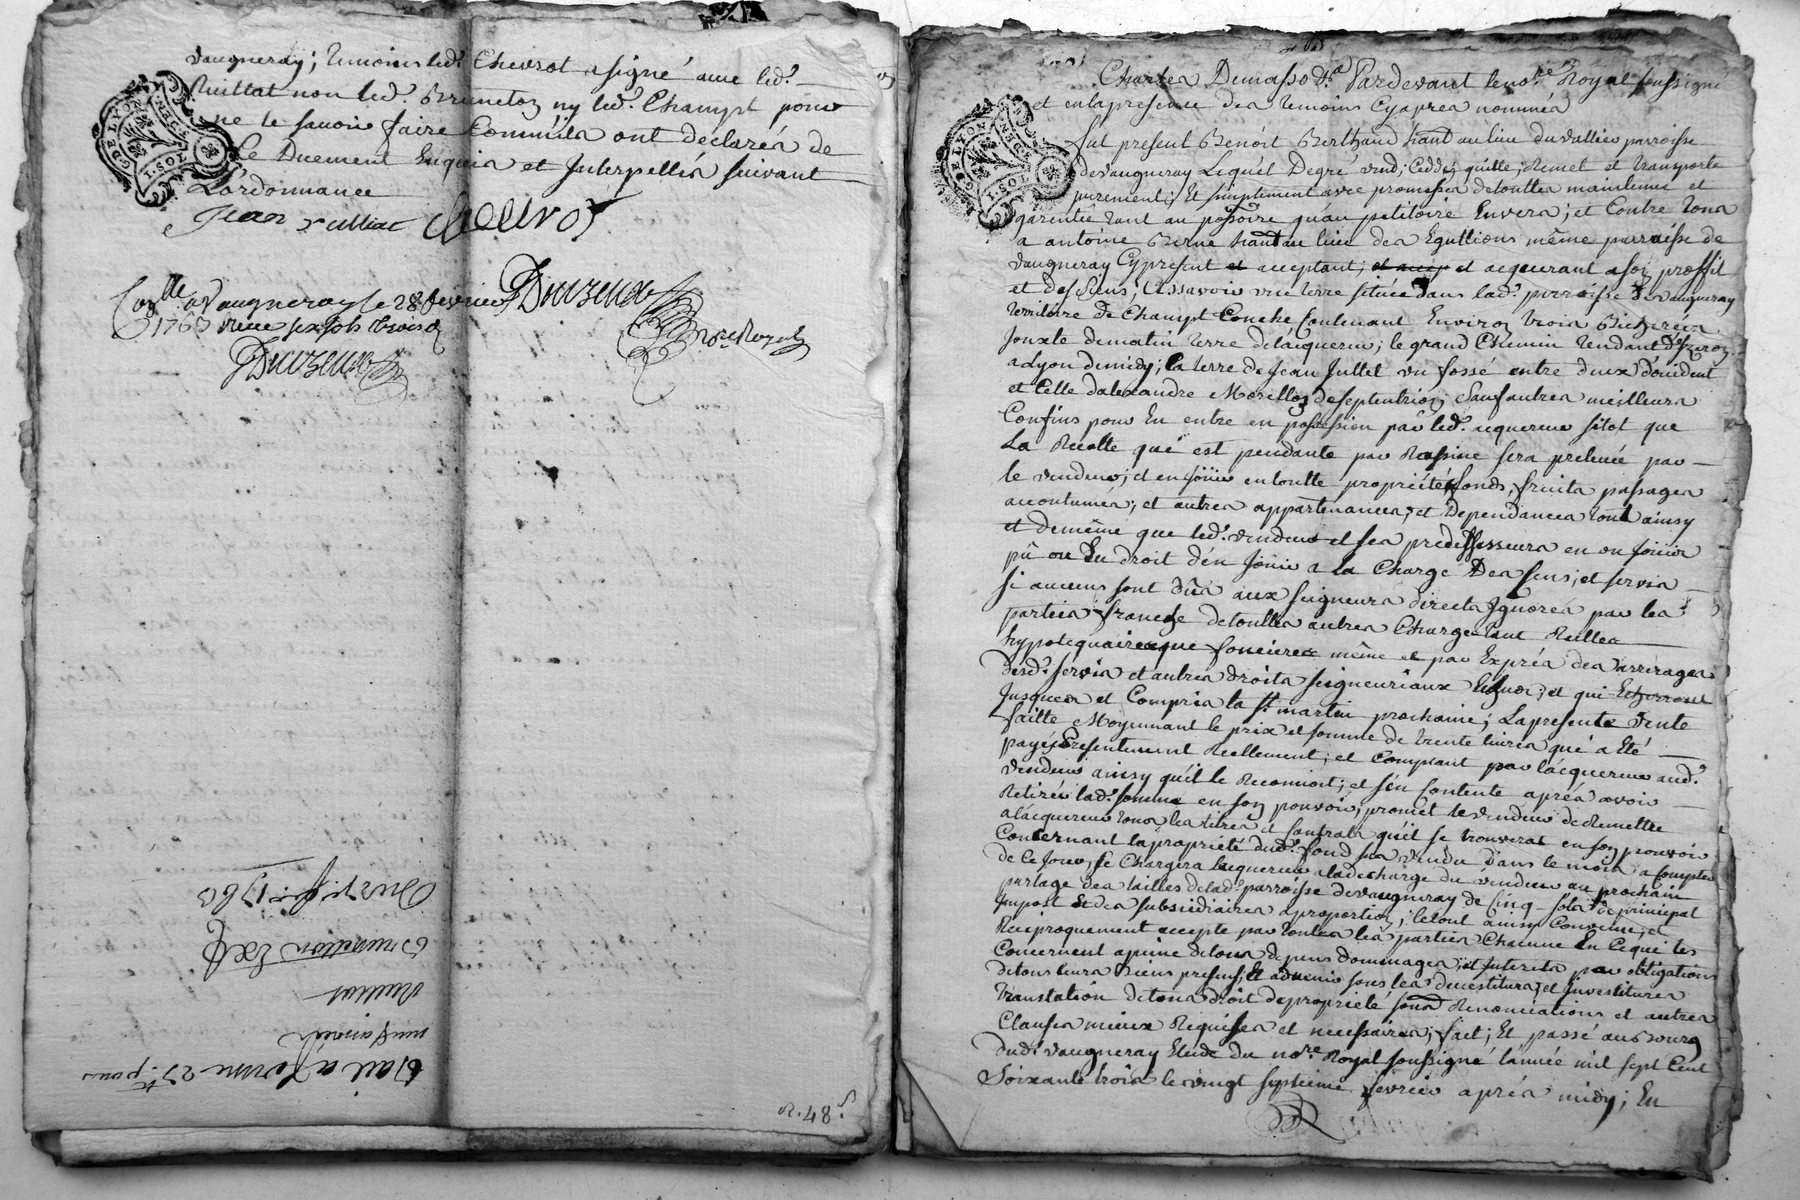 vaugneray; temoins led. Chevrot a signé avec led.
Rulliat non led. Brunetton ny led. Champt pour
ne le savoir faire comme ils ont déclaré de
ce Duement Enquis et Interpellés suivant
L'ordonnance
Jean rulliat Chevrot
GDE LYON
I. SOL
Coolle a vaugneray le 28 fevrier
1763 Recu six sols trois d
Not Royal
Bail a ferme 27
neuf années
Rulliat
Brunetton
1763
Par devant le nore Royal soussigné
et en la presence des temoins cy apres nommés
GDE LYON
I. SOL
fut present Benoit Berthaud habt au lieu du vallier parroisse
de vaugneray Lequel De gré vend; cedde; quitte; Remet et transporte
purement; Et simplement avec promesses de touttes maintenüe et
garentie tant au possoire qu'au petitoire Envers; et Contre tous
a antoine Berne habt au lieu des Eguttions même parroisse de
vaugneray Cy present et acceptant; et accep et acquerant a soy proffit
et des siens; C'assavoir une terre située dans lad. parroisse de vaugneray
territoire de Champt Conche Contenant Environ trois Bicherées
Jouxte de matin terre de l'acquereur; le grand Chemin tendant d'Izeron
a Lyon de midy; la terre de Jean Juttet un fossé entre deux d'occident
et Celle d'alexandre Morellon de septentrion; Sauf autres meilleurs
Confins pour En entre en possession par led. acquereur sitot que
La Recolte qui est pendante par Rassine sera prelevée par
le vendeur; et en joüir en toutte proprieté, fonds, fruits passages
accoutumés; et autres appartenances; et Dependances tout ainsy
et de même que led. vendeur et ses predessesseurs en on joüir
pû ou Eu droit d'en joüir a La Charge Des sens; et servis
si aucuns sont dûs aux seigneurs directs Ignorés par les
parties franche de touttes autres Charges tant Reelles
hypotequaires que foncieres même et par Exprés des arrerages
desd. servis et autres droits seigneuriaux Echus; et qui Echerront
Jusques et Compris la St. martin prochaine; La presente vente
faitte Moyennant le prix et somme de trente livres qui a Eté
payé Presentement Reellement; et Comptant par l'acquereur aud.
vendeur ainsy qu'il le Reconnoit; et s'en Contente aprés avoir
Retirée lad. somme en son pouvoir, promet le vendeur de Remettre
a l'acquereur tous les titres et Contrats qu'il se trouverat en son pouvoir
Concernant la proprieté dud. fond sus vendu Dans le mois a compter
de Ce Jour, se Chargera l'acquereur a la decharge du vendeur au prochain
partage des tailles de lad. parroisse de vaugneray de Cinq sols de principal
Impost Et des subsidiaires a proportion; le tout ainsy Convenu; et
Reciproquement accepté par touttes les parties Chacune En Ce qui les
Concernent a peine de tous depens dommages; et Interets par obligations
de tous leurs Biens presens; Et advenir sous les devestitures; et Investitures
translation de tous droit de proprieté sous Renonciations et autres
Clauses mieux Requises et necessaires; fait; Et passé au Bourg
dud. vaugneray Etude du nore Royal soussigné L'année mil sept Cent
Soixante trois le vingt septieme fevrier aprés midy; En